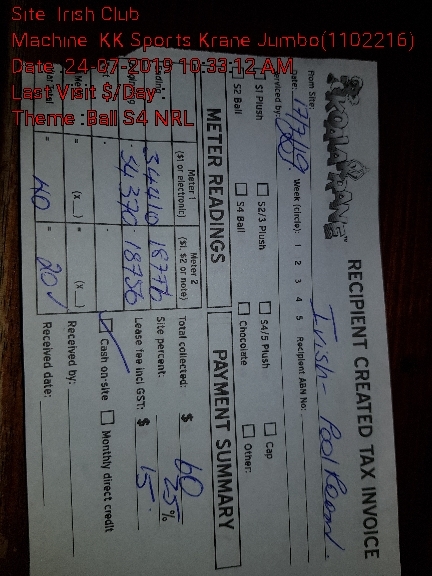 Site Irish Club
Machine KK Sports Krane Jumbo(1102216)
Date :24-07-2019 10:33:12 AM
Last Visit $/Day :
Theme :Ball S4 NRL
KOALA KRANE
RECIPIENT CREATED TAX INVOICE
From Site: Irish - Pool Room.
Date: 17/7/19 Week (circle): 1 2 3 4 5 Recipient ABN No:
Serviced by:
$1 Plush $2/3 Plush $4/5 Plush Cap
$2 Ball $4 Ball Chocolate Other:
METER READINGS
Meter 1 Meter 2
($1 or electronic) ($1, $2 or note)
34410 18776
34370 18756
(x ) (x )
= 40 = 20
PAYMENT SUMMARY
Total collected: $ 60
Site percent: 25 %
Lease fee incl GST: $ 15
Cash on-site Monthly direct credit
Received by:
Received date: